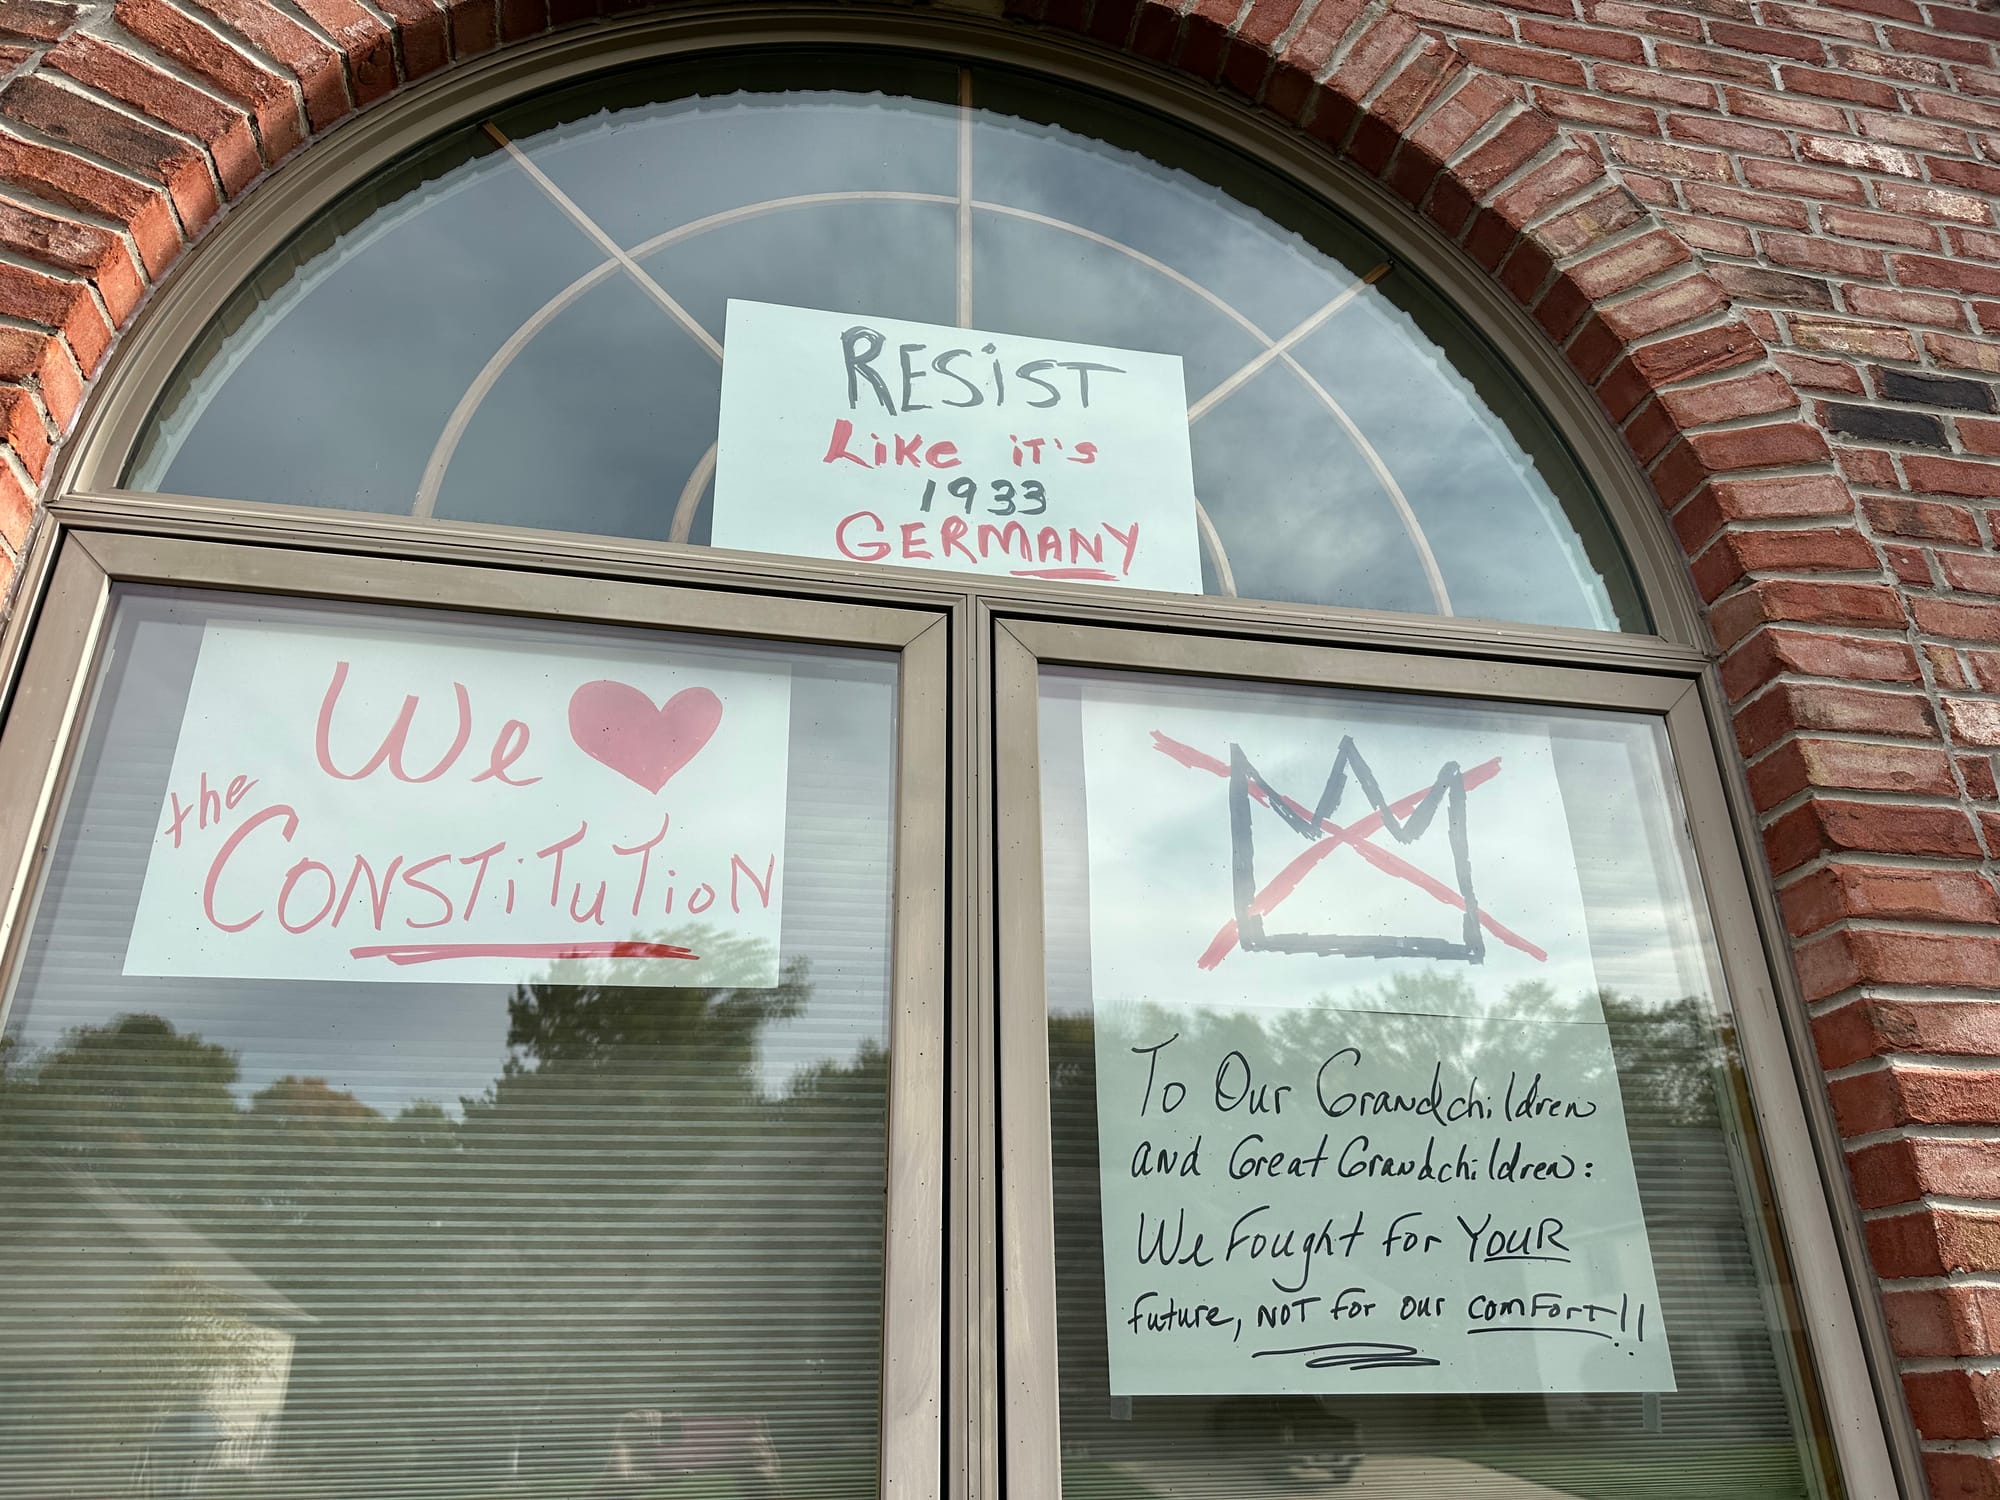 RESiST
LiKe iT's
1933
GERMANY
We
the
CONSTiTuTioN
To Our Grandchildren
and Great Grandchildren:
We Fought for YOUR
future, NOT for our comFORT!!